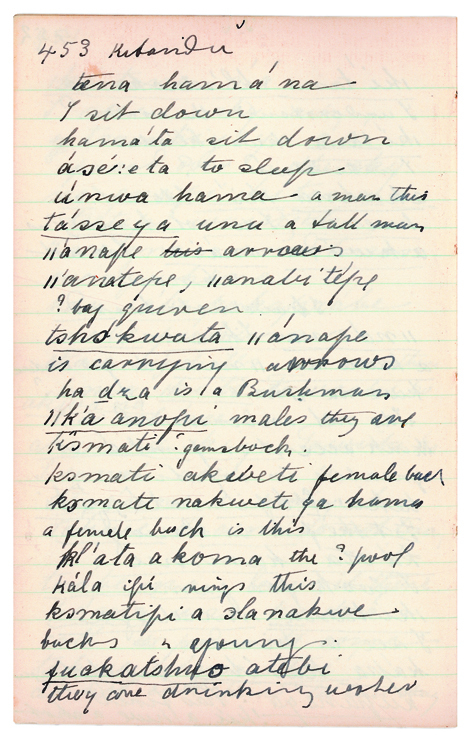 453 Kibaridu
tena hamá'na
I sit down
hamá'ta sit down
ásé:eta to sleep
únwa hama a man this
tásseya unu a tall man
ǁanape his arrows
ǁanatepe, ǁanabitépe
? bag quiver
tshókwata ǁánape
is carrying arrows
ha dza is a Bushman
ǁká anopi males they are
ksmati ? gemsbock.
ksmati akweti female buck
ksmati nakweti ga hama
a female buck is this
kl'ata akoma the ? pool
Kála ipi rings this
ksmatipi a slanakwe
bucks " young.
atobi
they are drinking water